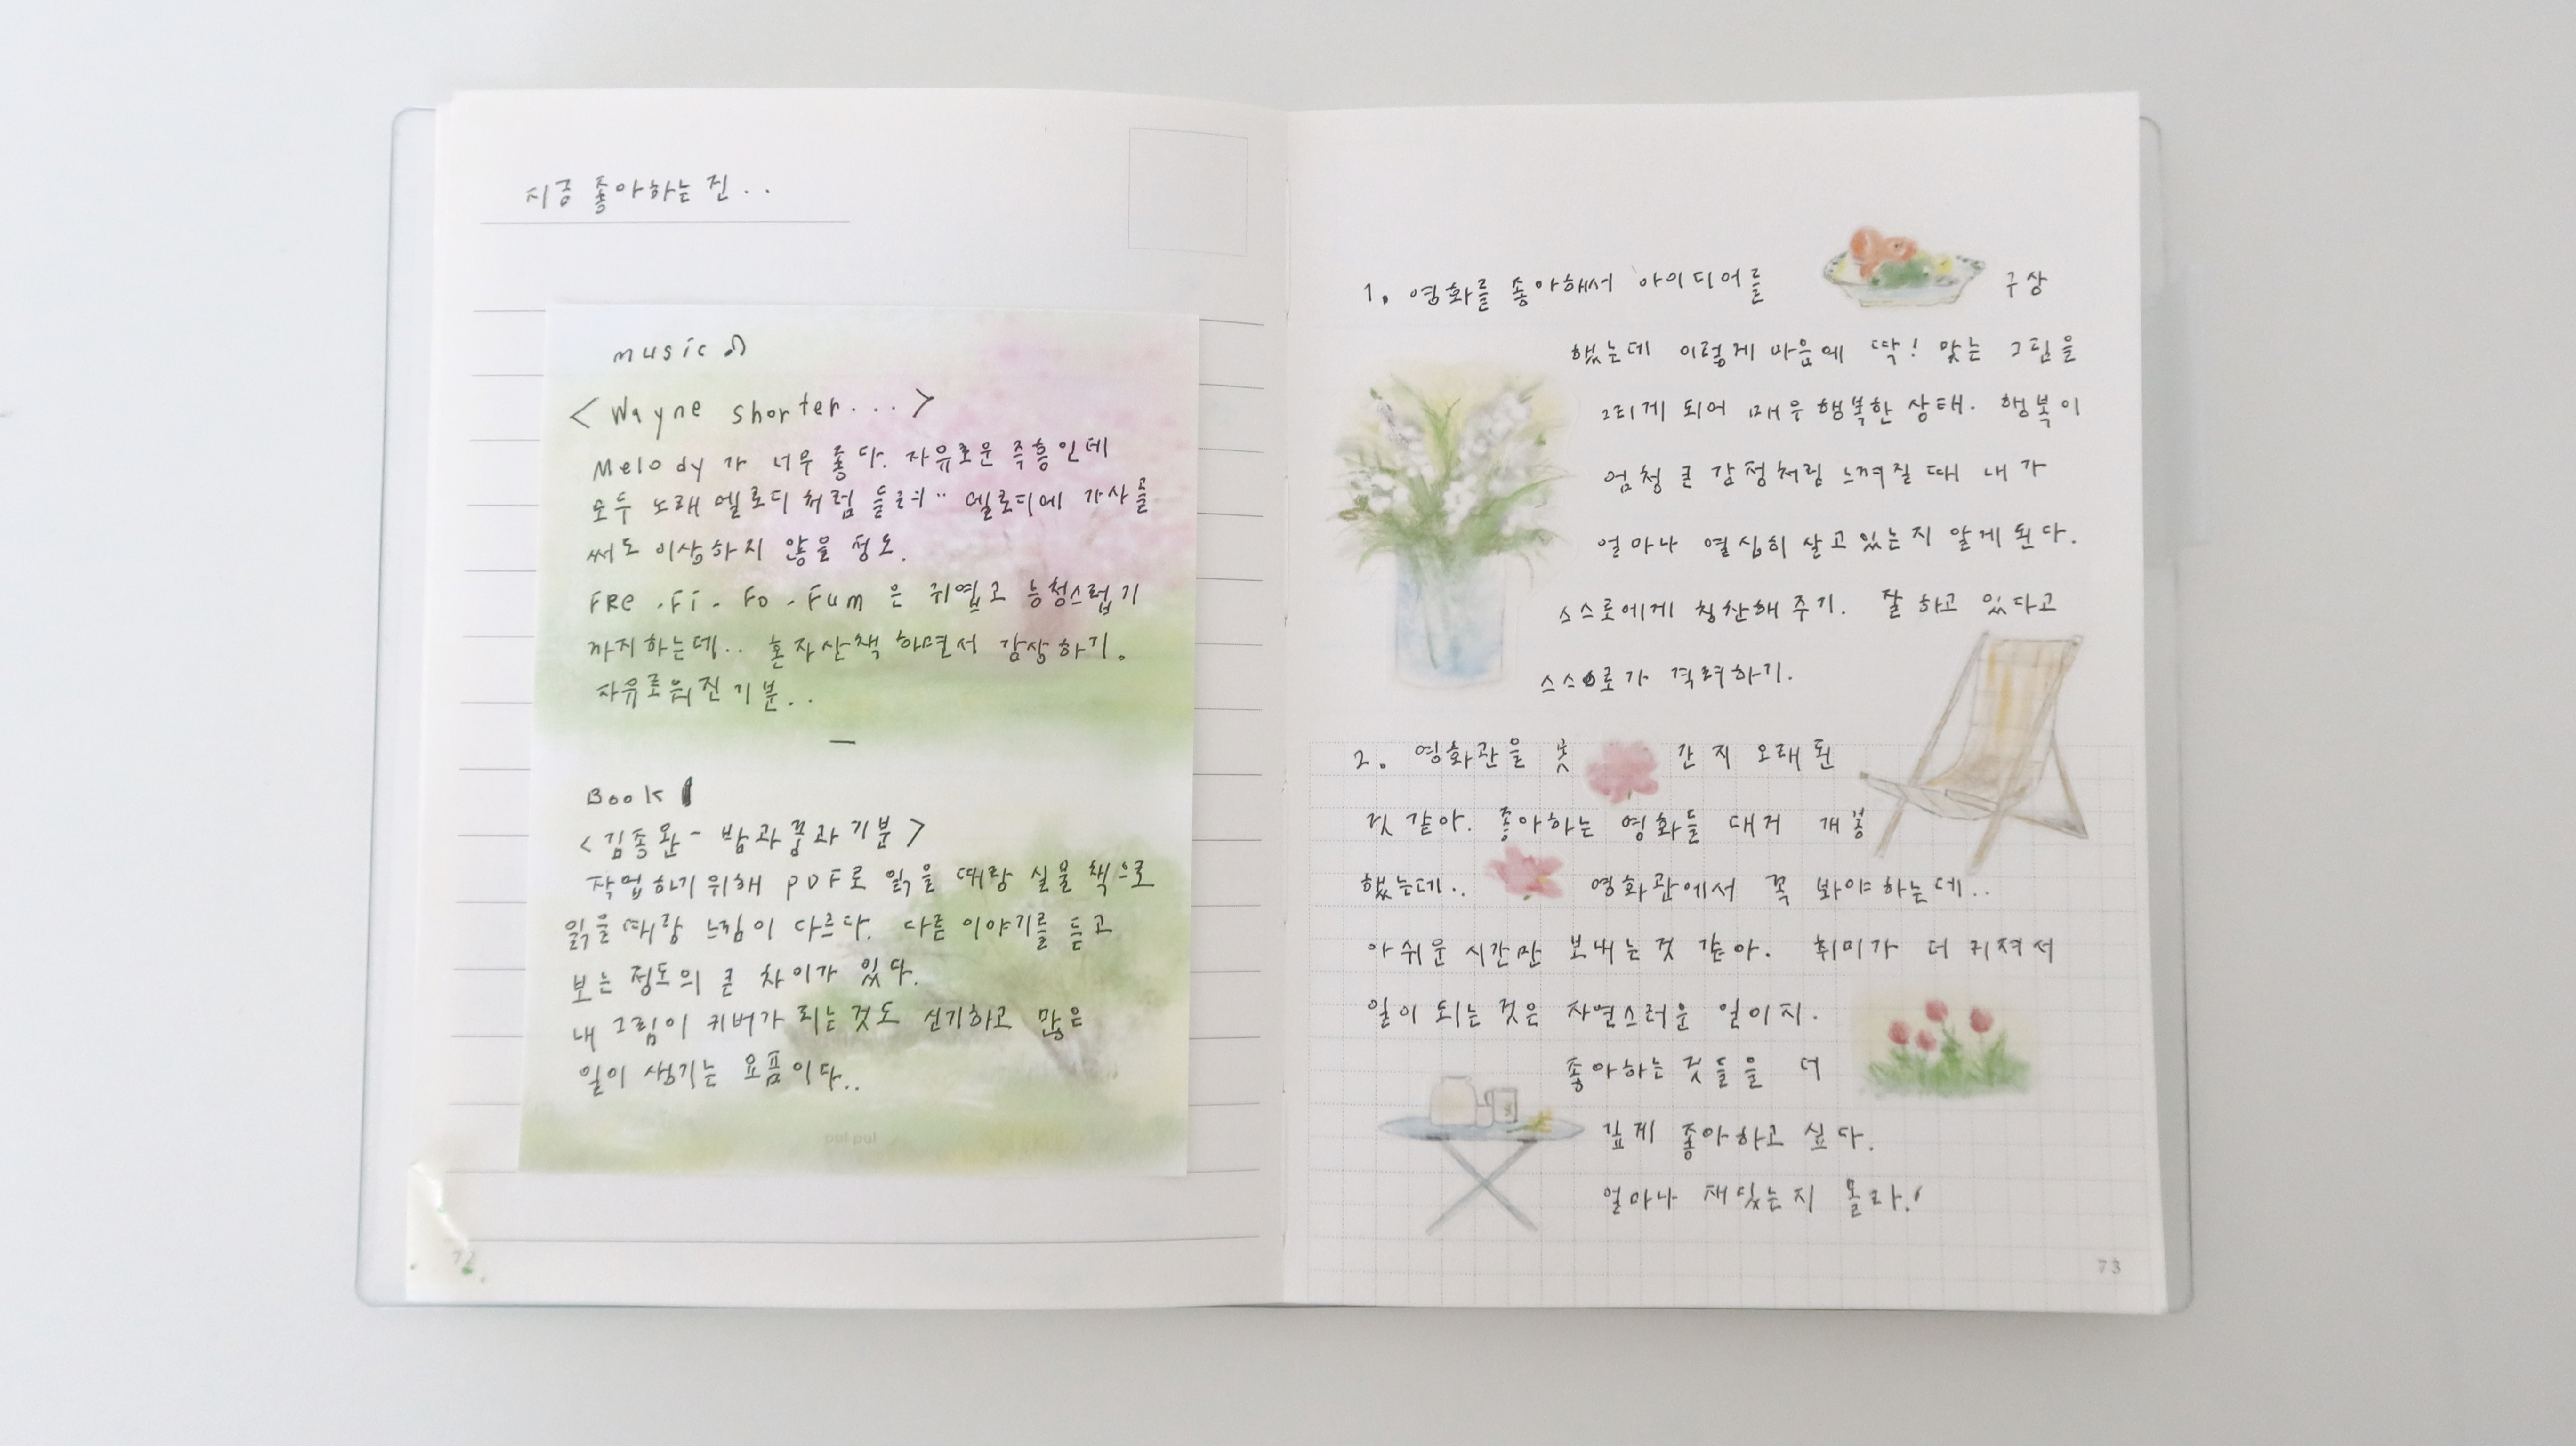 지금 좋아하는 진..
music♫
<Wayne shorter...>
Melody가 너무 좋다. 자유로운 즉흥인데
모두 노래 멜로디처럼 들려.. 멜로디에 가사를
써도 이상하지 않을 정도.
FRe-Fi-Fo-Fum은 귀엽고 능청스럽기
까지하는데.. 혼자산책 하면서 감상하기.
자유로워진기분..
—
Book
<김종완- 밤과꿈과기분>
작업하기위해 PDF로 읽을 때랑 실물책으로
읽을때랑 느낌이 다르다. 다른 이야기를 듣고
보는 정도의 큰 차이가 있다.
내 그림이 커버가 되는 것도 신기하고 많은
일이 생기는 요즘이다..
pulpul
72
1. 영화를 좋아해서 아이디어를 구상
했는데 이렇게 마음에 딱! 맞는 그림을
그리게 되어 매우 행복한 상태. 행복이
엄청 큰 감정처럼 느껴질 때 내가
얼마나 열심히 살고있는지 알게된다.
스스로에게 칭찬해주기. 잘하고 있다고
스스로가 격려하기.
2. 영화관을 못 간지 오래된
것 같아. 좋아하는 영화들 대거 개봉
했는데.. 영화관에서 꼭 봐야하는데..
아쉬운 시간만 보내는 것 같아. 취미가 더 커져서
일이 되는 것은 자연스러운 일이지.
좋아하는 것들을 더
깊게 좋아하고 싶다.
얼마나 재밌는지 몰라!
73